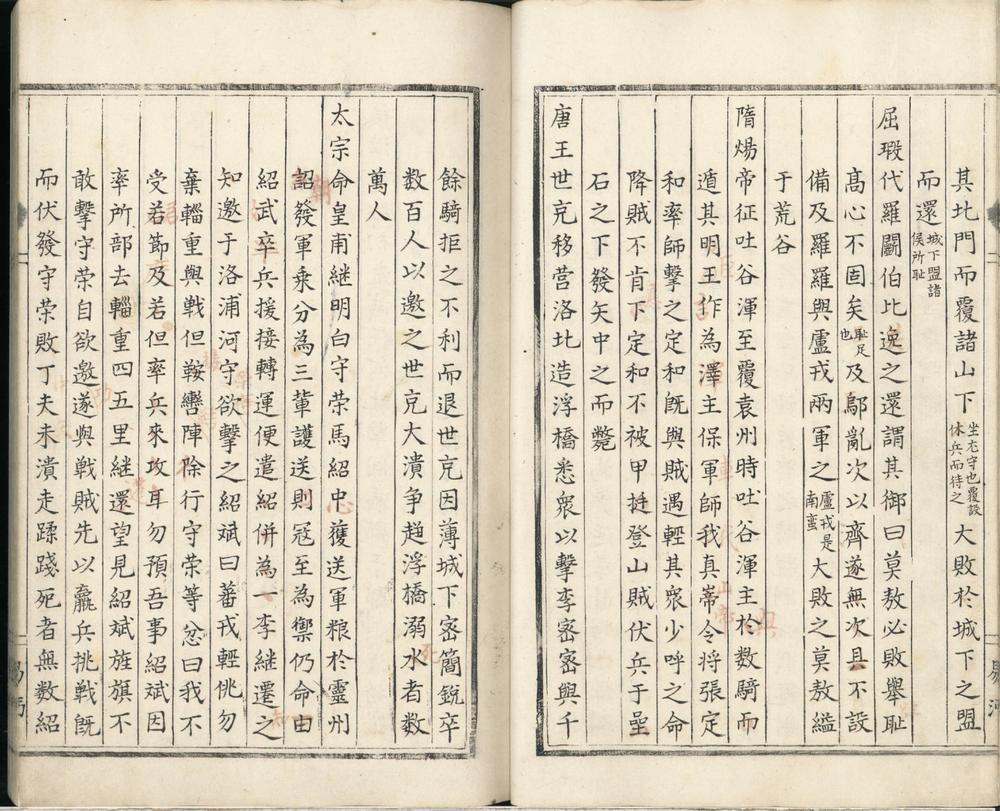 其北門而覆諸山下坐尢守也覆設伏兵而待之大敗於城下之盟
而還城下盟諸侯所耻
屈瑕代羅鬭伯比逸之還謂其御曰莫敖必敗舉耻
髙心不固矣耻足也及鄢亂次以齊遂無次且不設
備及羅羅與盧戎兩軍之盧戎是南蛮大敗之莫敖縊
于荒谷
隋煬帝征吐谷渾至覆袁州時吐谷渾主於数騎而
遁其明王作為澤主保軍師我真嵜令将張定
和率師擊之定和既與賊遇輕其衆少呼之命
降賊不肯下定和不被甲挺登山賊伏兵于
石之下發矢中之而斃
唐王世充移营洛北造浮橋悉衆以擊李宻宻與千
餘騎拒之不利而退世克因薄城下宻簡銳卒
数百人以邀之世克大潰争趋浮橋溺水者数
萬人
太宗命皇甫継明白守荣馬紹中䕶送軍粮於靈州
詔發軍乗分為三軰護送則冦至為禦仍命由
紹武卒兵援接轉運便遣紹併為一李継遷之
知邀于洛浦河守欲擊之紹斌曰蕃戎輕佻勿
棄輜重與戦但鞍轡陣徐行守荣等忿曰我不
受若節及若但率兵來攻耳勿預吾事紹斌因
率所部去輜重四五里継還望見紹斌旌旗不
敢擊守荣自欲邀遂與戦賊先以羸兵挑戦既
而伏發守荣敗丁夫未潰走蹂踐死者無数紹